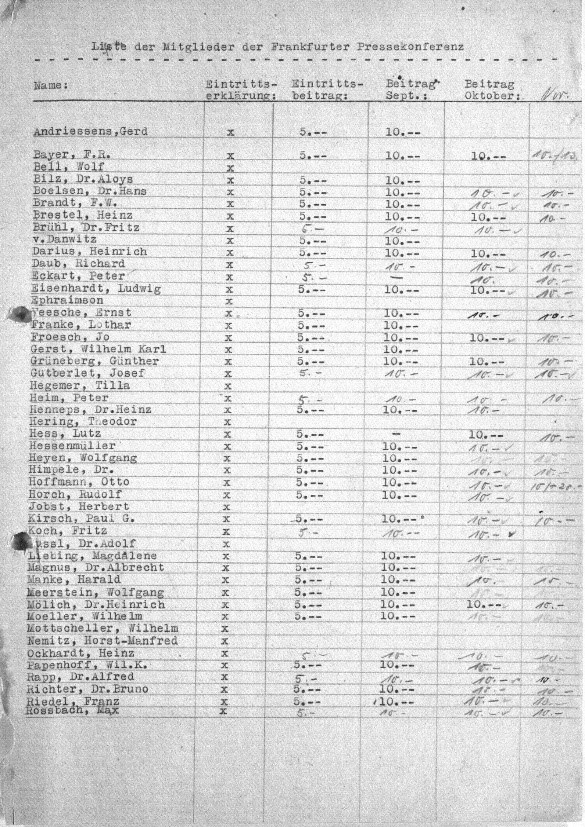 Liste der Mitglieder der Frankfurter Pressekonferenz
Name: Eintritts- Eintritts- Beitrag Beitrag Nov.
erklärung: beitrag: Sept.: Oktober:
Andriessens,Gerd x 5.-- 10.--
Bayer, F.R. x 5.-- 10.-- 10.--
Bell, Wolf x
Bilz, Dr.Aloys x 5.-- 10.--
Boelsen, Dr.Hans x 5.-- 10.-- 10.- 10.-
Brandt, F.W. x 5.-- 10.-- 10.- 10.-
Brestel, Heinz x 5.-- 10.-- 10.-- 10.-
Brühl, Dr.Fritz x 5.- 10.- 10.-
v.Danwitz x 5.-- 10.--
Darius, Heinrich x 5.-- 10.-- 10.-- 10.-
Daub, Richard x 5.- 10.- 10.- 10.-
Eckart, Peter x 5.- — 10. 10.-
Eisenhardt, Ludwig x 5.-- 10.-- 10.-- 10.-
Ephraimson x
Feesche, Ernst x 5.-- 10.-- 10.- 10.-
Franke, Lothar x 5.-- 10.--
Froesch, Jo x 5.-- 10.-- 10.-- 10.-
Gerst, Wilhelm Karl x 5.-- 10.--
Grüneberg, Günther x 5.-- 10.-- 10.-- 10.-
Gutberlet, Josef x 5.- 10.- 10.- 10.-
Hegemer, Tilla x
Heim, Peter x 5.- 10.- 10.- 10.-
Henneps, Dr.Heinz x 5.-- 10.-- 10.-
Hering, Theodor x
Hess, Lutz x 5.-- — 10.-- 10.-
Hessenmüller x 5.-- 10.-- 10.-
Heyen, Wolfgang x 5.-- 10.--
Himpele, Dr. x 5.-- 10.-- 10.- 10.-
Hoffmann, Otto x 5.-- 10.-- 10.-
Horch, Rudolf x 5.-- 10.-- 10.-
Jobst, Herbert x
Kirsch, Paul G. x 5.-- 10.-- 10.- 10.-
Koch, Fritz x 5.- 10.- 10.-
Dr.Adolf x
Liebing, Magdalene x 5.-- 10.-- 10.-
Magnus, Dr.Albrecht x 5.-- 10.--
Manke, Harald x 5.-- 10.-- 10. 10.-
Meerstein, Wolfgang x 5.-- 10.--
Mölich, Dr.Heinrich x 5.-- 10.-- 10.-- 10.-
Moeller, Wilhelm x 5.-- 10.--
Mottscheller, Wilhelm x
Nemitz, Horst-Manfred x
Ockhardt, Heinz x 5.- 10.- 10.- 10.-
Papenhoff, Wil.K. x 5.-- 10.-- 10.-
Rapp, Dr.Alfred x 5.- 10.- 10.- 10.-
Richter, Dr.Bruno x 5.-- 10.-- 10.- 10-
Riedel, Franz x 5.-- 10.-- 10.- 10.-
Rossbach, Max x 5.- 10.- 10.- 10.-